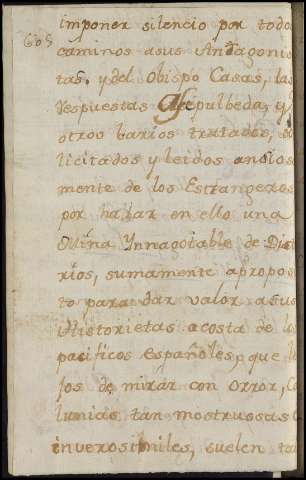 605
imponer silencio por todos
caminos asus Antagonis
tas. y del Obispo Casas, las
respuestas Sepulbeda, y
otros barios tratados, so
licitados y leidos ansiosa
mente de los Estrangeros
por hallar en ello una
Mina Ynnagotable de Dict
rios, sumamente apropos
to para dar valor asus
Historietas acosta de los
pacificos españoles, que le
jos de mirar con orror, Ca
lunias tan mostruosas
inverosimiles, suelen